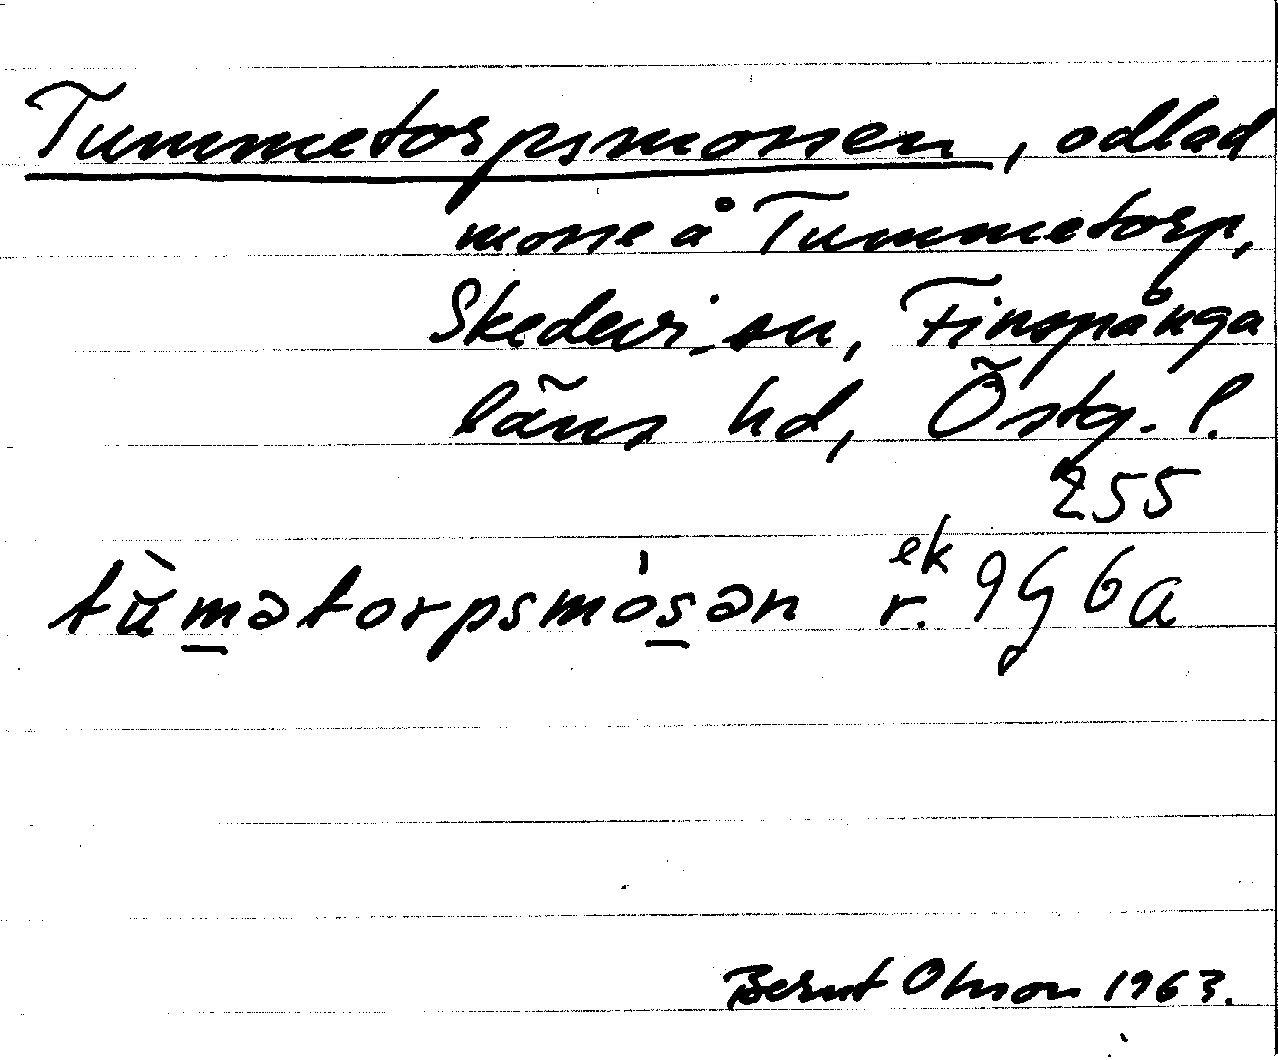 Tummetorpsmossen, odlad
mosse å Tummetorp,
Skedevi sn, Finspånga
läns hd, Östg. l.
255
ek
tùmətorpsmósən r. 9G 6a
Bernt Olson 1963.